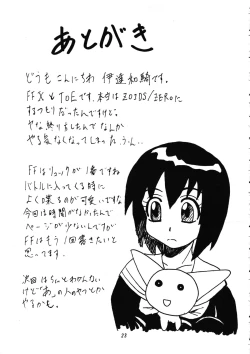 あとがき
どうもこんにちわ 伊達和綺です。
FFXとTOEです。本当はZOIDS/ZEROに
するつもりだったんですけど。
やな終りしたんでなんか
やる気なくなってしまった、うん..
FFはリュックが1番ですね
バトルに入ってくる時に
よく喋るのが可愛いですね
今回は時間がなかったんで
ページが少ないんですが
FFはもう1回書きたいと
思ってます。
次回はちょっとわかんない
けど「あ」の人のやつとか
やるかも。